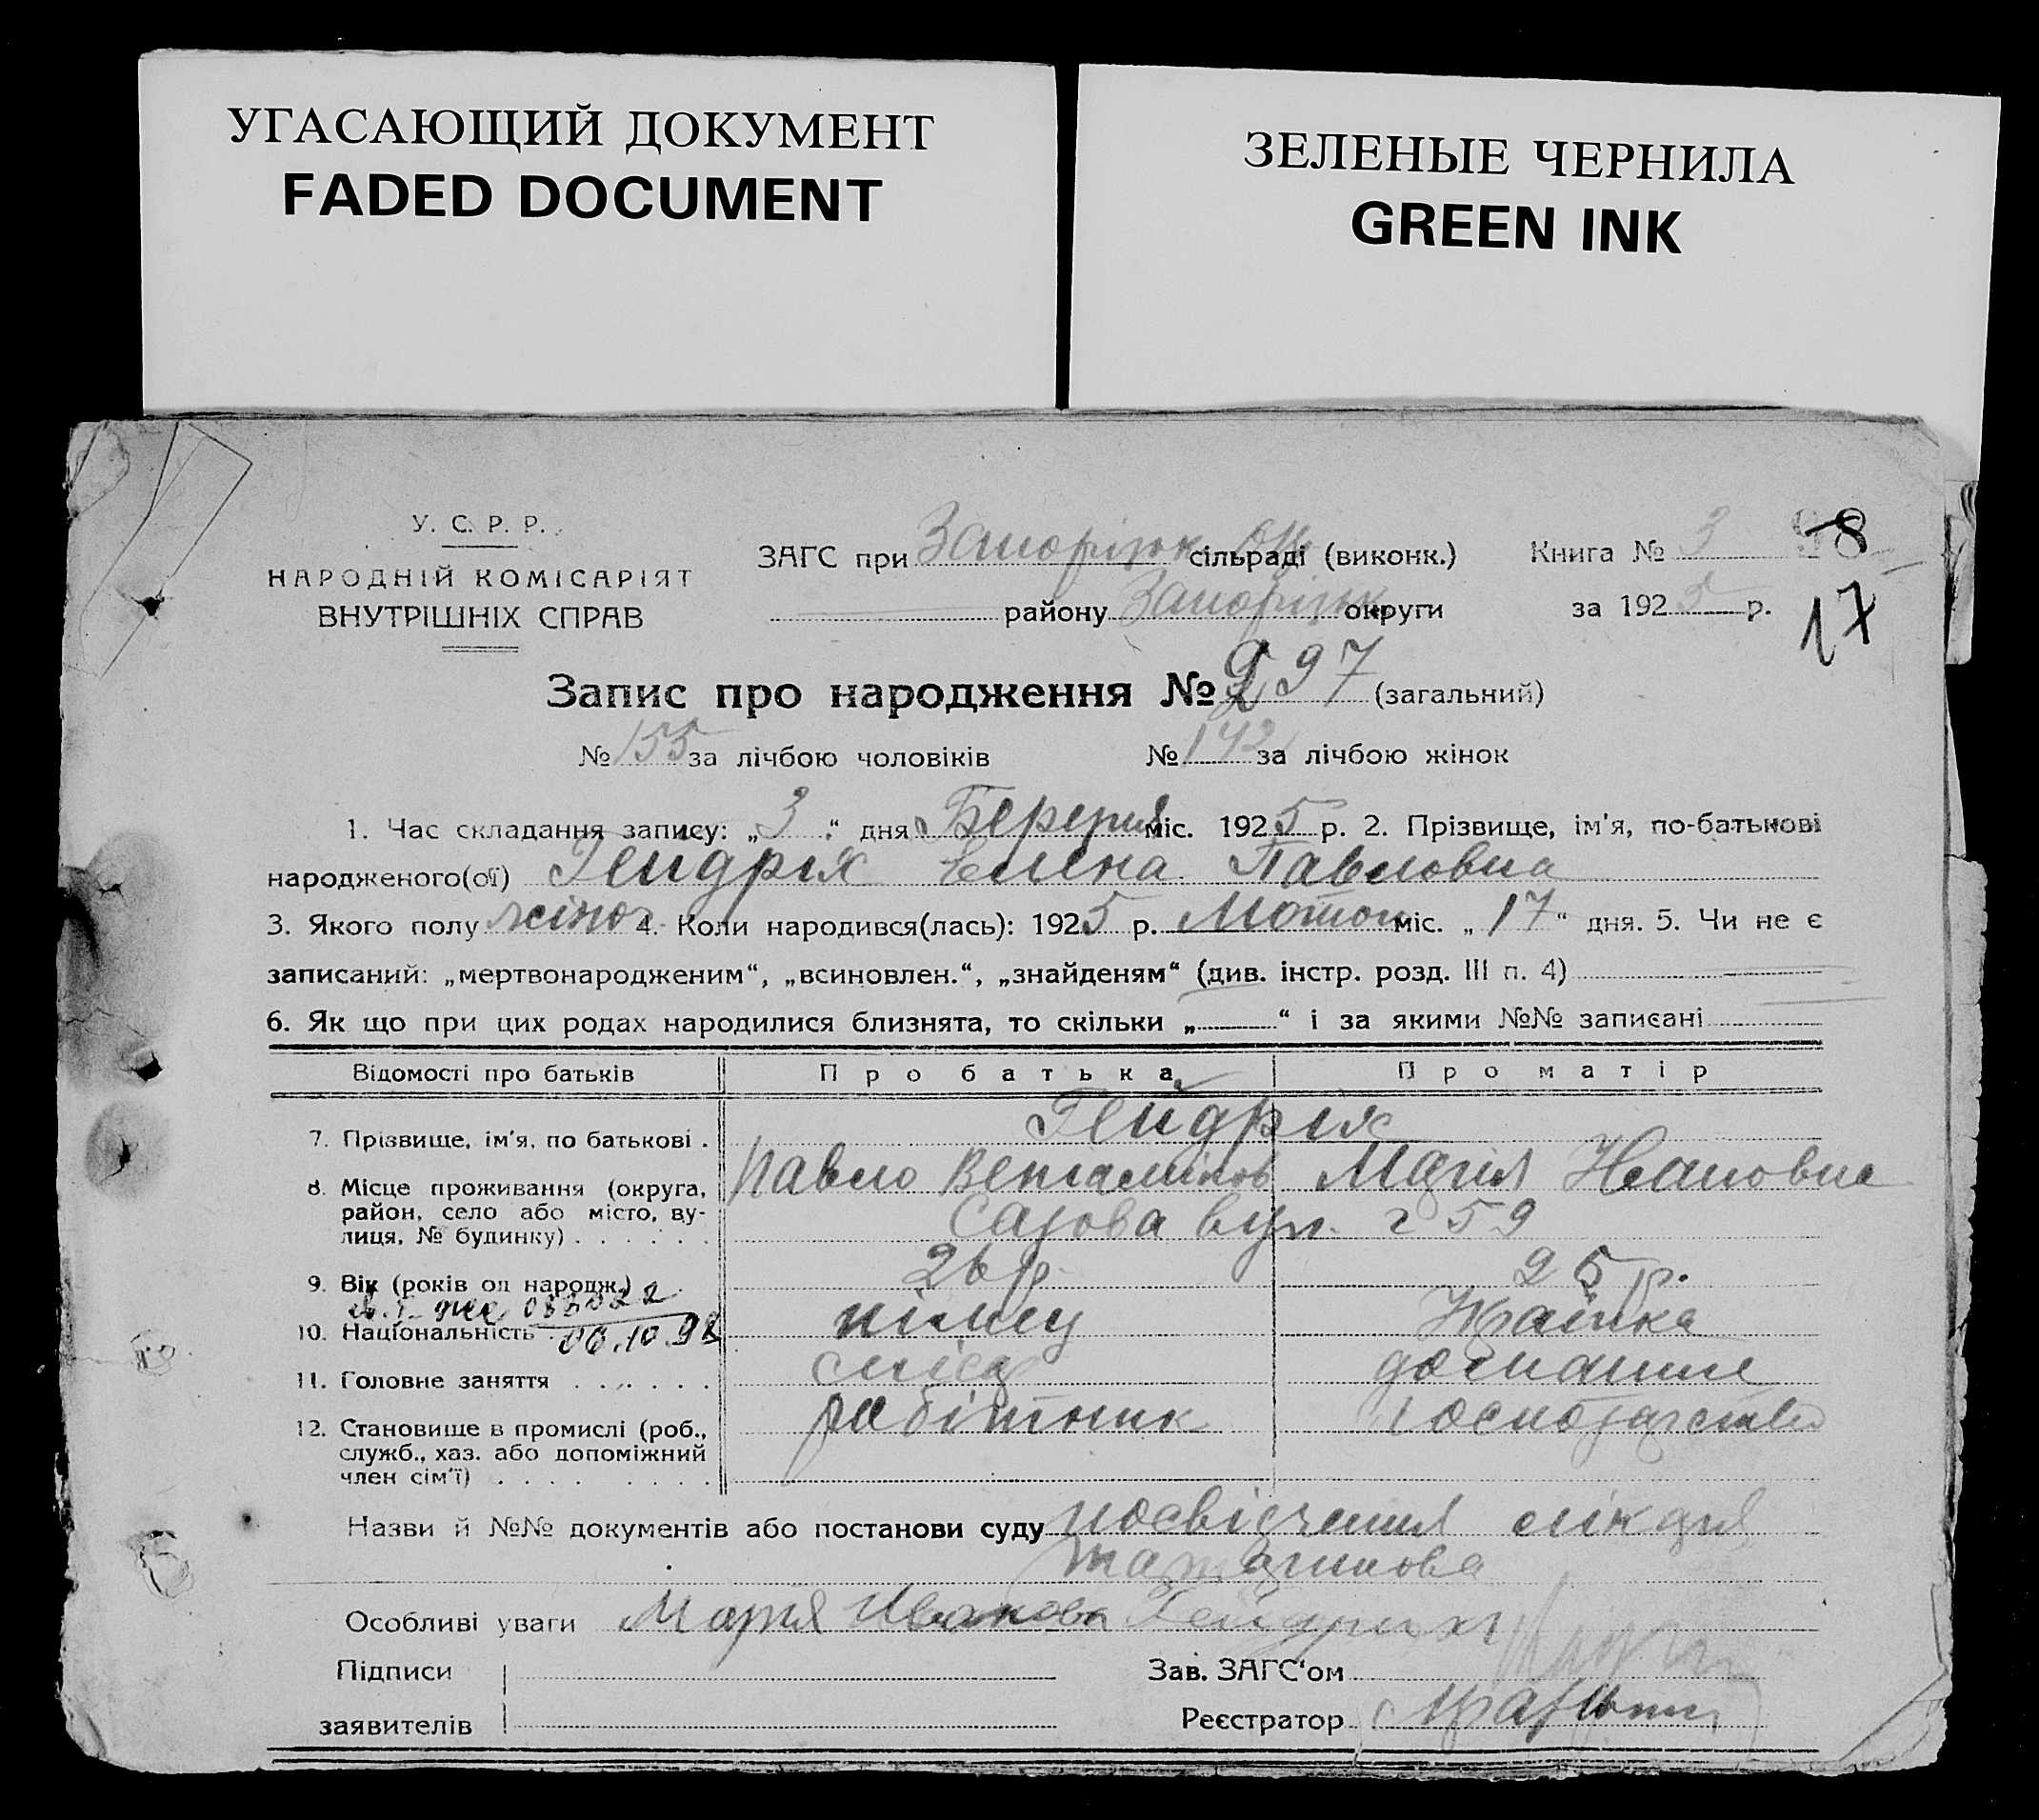 УГАСАЮЩИЙ ДОКУМЕНТ
FADED DOCUMENT
ЗЕЛЕНЫЕ ЧЕРНИЛА
GREEN INK
У. С. Р. Р.
НАРОДНІЙ КОМІСАРІЯТ
ВНУТРІШНІХ СПРАВ
ЗАГС при Запоріжж сільраді (виконк.)
району Запоріжж округи
Книга № 3
98
за 1925 р.
17
Запис про народження № 297 (загальний)
№ 155 за лічбою чоловіків № 142 за лічбою жінок
1. Час складання запису: „3“ дня Березня міс. 1925 р. 2. Прізвище, ім'я, по-батькові
народженого(ої) Гейдріх Елена Павловна
3. Якого полу жіноч 4. Коли народився(лась): 1925 р. Лютого міс. „17“ дня. 5. Чи не є
записаний: „мертвонародженим“, „всиновлен.“, „знайденям“ (див. інстр. розд. III п. 4)
6. Як що при цих родах народилися близнята, то скільки „ “ і за якими №№ записані
Відомості про батьків Про батька Про матір
7. Прізвище, ім'я, по батькові . Гейдріх
Павло Веніамінов Марія Ивановна
8. Місце проживання (округа,
район, село або місто, ву-
лиця, № будинку) . . . . . . Садова вул. 59
9. Вік (років од народж.) 26 р. 25 р.
06.10.92
10. Національність німец Українка
11. Головне заняття . . . . . . домашне
12. Становище в промислі (роб., робітник господарство
служб., хаз. або допоміжний
член сім'ї) . . . . . . . .
Назви й №№ документів або постанови суду посвідчення лікаря
Особливі уваги Марія Иванова Гейдрих
Підписи
заявителів
Зав. ЗАГС'ом
Реєстратор